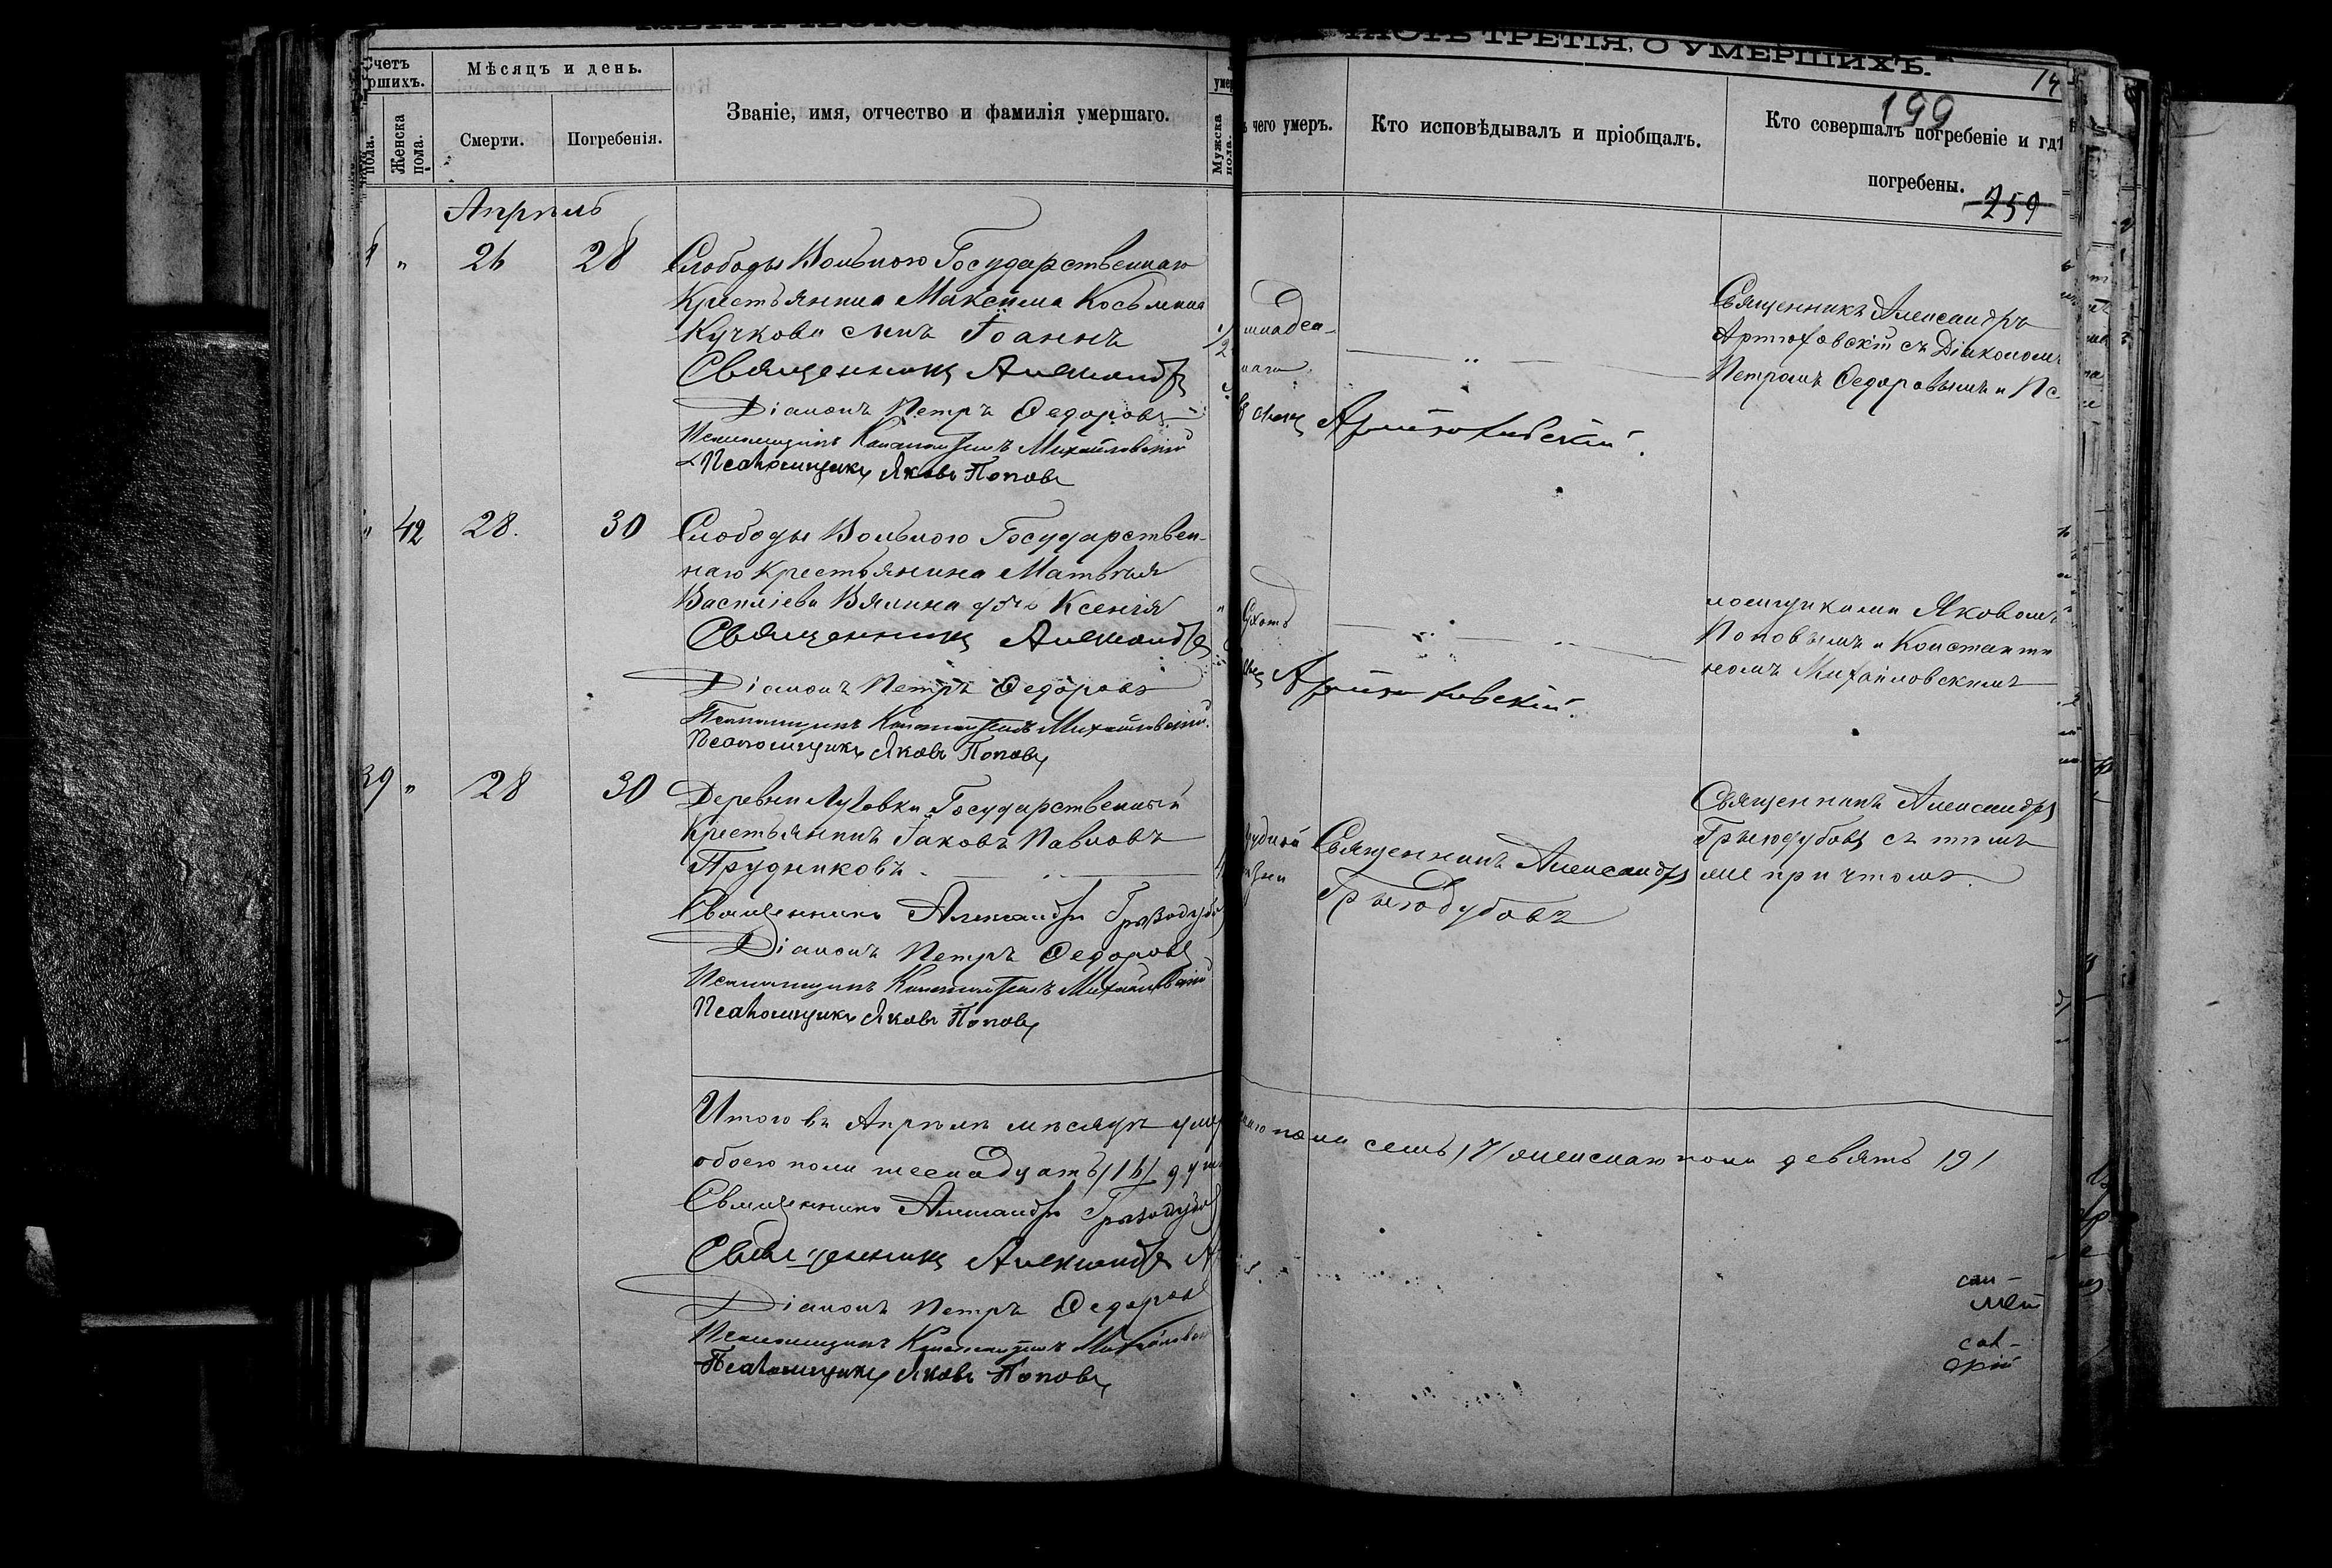 ЧАСТЬ ТРЕТІЯ, О УМЕРШИХЪ.
199
259
Мѣсяцъ и день.
Женска пола.
Смерти.
Погребенія.
Званіе, имя, отчество и фамилія умершаго.
Мужска пола.
чего умеръ.
Кто исповѣдывалъ и пріобщалъ.
Кто совершалъ погребеніе и гдѣ
погребены.
Апрѣль
" 26 28 Слободы Вольного Государственнаго
Крестьянина Максима Косьмина
Кучкова сынъ Іоаннъ
Священникъ Александръ
Діаконъ Петръ Ѳедоровъ
Псаломщикъ Константинъ Михайловскій
Псаломщикъ Яковъ Поповъ
младен-
Артюховскій.
Священникъ Александръ
Артюховскій съ Діакономъ
Петромъ Ѳедоровымъ и Пса
42 28. 30 Слободы Вольного Государствен-
наго крестьянина Матвѣя
Василіева Вялина дочь Ксенія
Священникъ Александръ
Діаконъ Петръ Ѳедоровъ
Псаломщикъ Константинъ Михайловскій.
Псаломщикъ Яковъ Поповъ
Артюховскій.
ломщиками Яковомъ
Поповымъ и Константи
номъ Михайловскимъ
39 " 28 30 Деревни Государственный
крестьянинъ Іаковъ Павловъ
Прудниковъ
Священникъ Александръ
Діаконъ Петръ Ѳедоровъ
Псаломщикъ Константинъ Михайловскій
Псаломщикъ Яковъ Поповъ
Священникъ Александръ
Грызодубовъ
Священникъ Александръ
Грызодубовъ съ тѣмъ
же причтомъ.
Итого въ Апрѣлѣ мѣсяцѣ пола семь /7/ женскаго пола девять /9/
обоего пола шеснадцать /16/ душ
Священникъ Александръ
Священникъ Александръ
Діаконъ Петръ Ѳедоров
Псаломщикъ Константинъ Михайловскій
Псаломщикъ Яковъ Поповъ